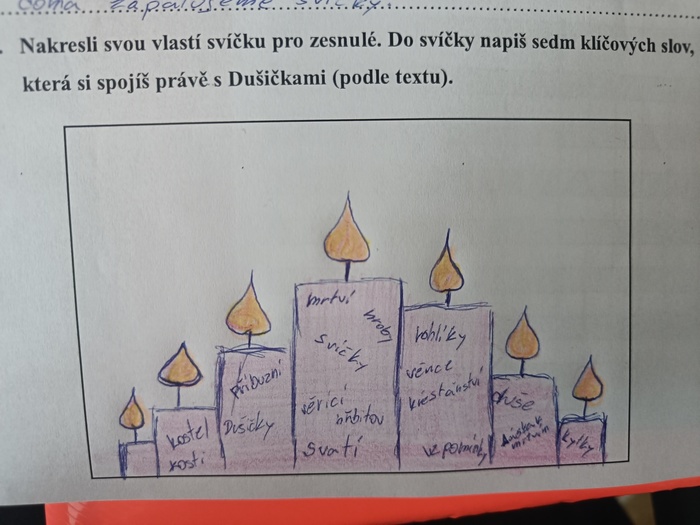 doma zapalujeme svíčky.
Nakresli svou vlastí svíčku pro zesnulé. Do svíčky napiš sedm klíčových slov,
která si spojíš právě s Dušičkami (podle textu).
kostel
kosti
příbuzní
Dušičky
mrtví
hroby
svíčky
věřící
hřbitov
svatí
rohlíky
věnce
křesťanství
vzpomínky
duše
kytky